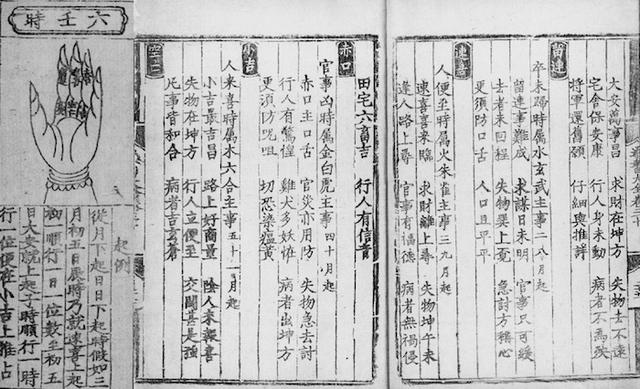 大安萬事昌　求財在坤方　失物去不遠
宅舍保安康　行人身未動　病者不為殃
將軍還舊願　仔細與推詳
留連
卒未歸時屬水玄武主事二八月起
留連事難成　求謀日未明　官事只可緩
去者未回程　失物巽上覓　急討方稱心
更須防口舌　人口且平平
速喜
人便至時屬火朱雀主事三九月起
速喜喜來臨　求財離上尋　失物坤午未
逢人路上尋　官事有福德　病者無禍侵
田宅六畜吉　行人有信音
赤口
官事凶時屬金白虎主事四十月起
赤口主口舌　官災亦用防　失物急去討
行人有驚惶　雞犬多妖怪　病者出坤方
更須防咒咀　切恐染瘟黃
小吉
人來喜時屬木六合主事五十一月起
小吉最吉昌　路上好商量　陰人來報喜
失物在坤方　行人立便至　交關甚是強
凡事皆和合　病者告玄蒼
空亡
六壬時
起例
從月下起日日下起時假如三
月初五日辰時乃就速喜上起
初一順行一日一位數至初五
日大安就上起子時順行一時
行一位便在小吉上推占